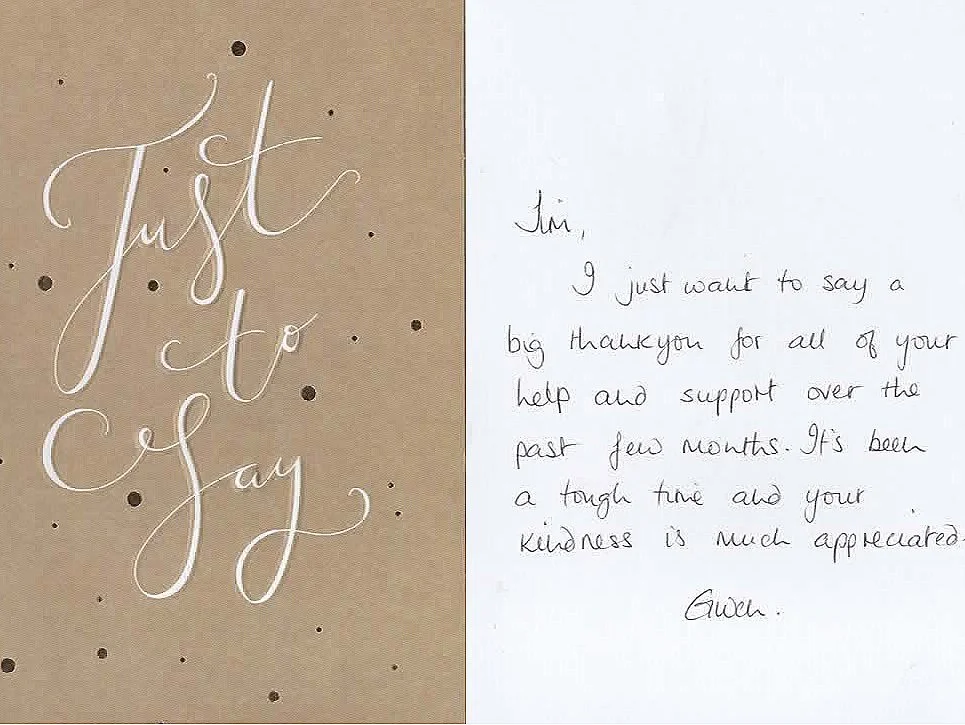 Just
to
Say
Jim,
I just want to say a
big thankyou for all of your
help and support over the
past few months. It's been
a tough time and your
kindness is much appreciated.
Gwen.